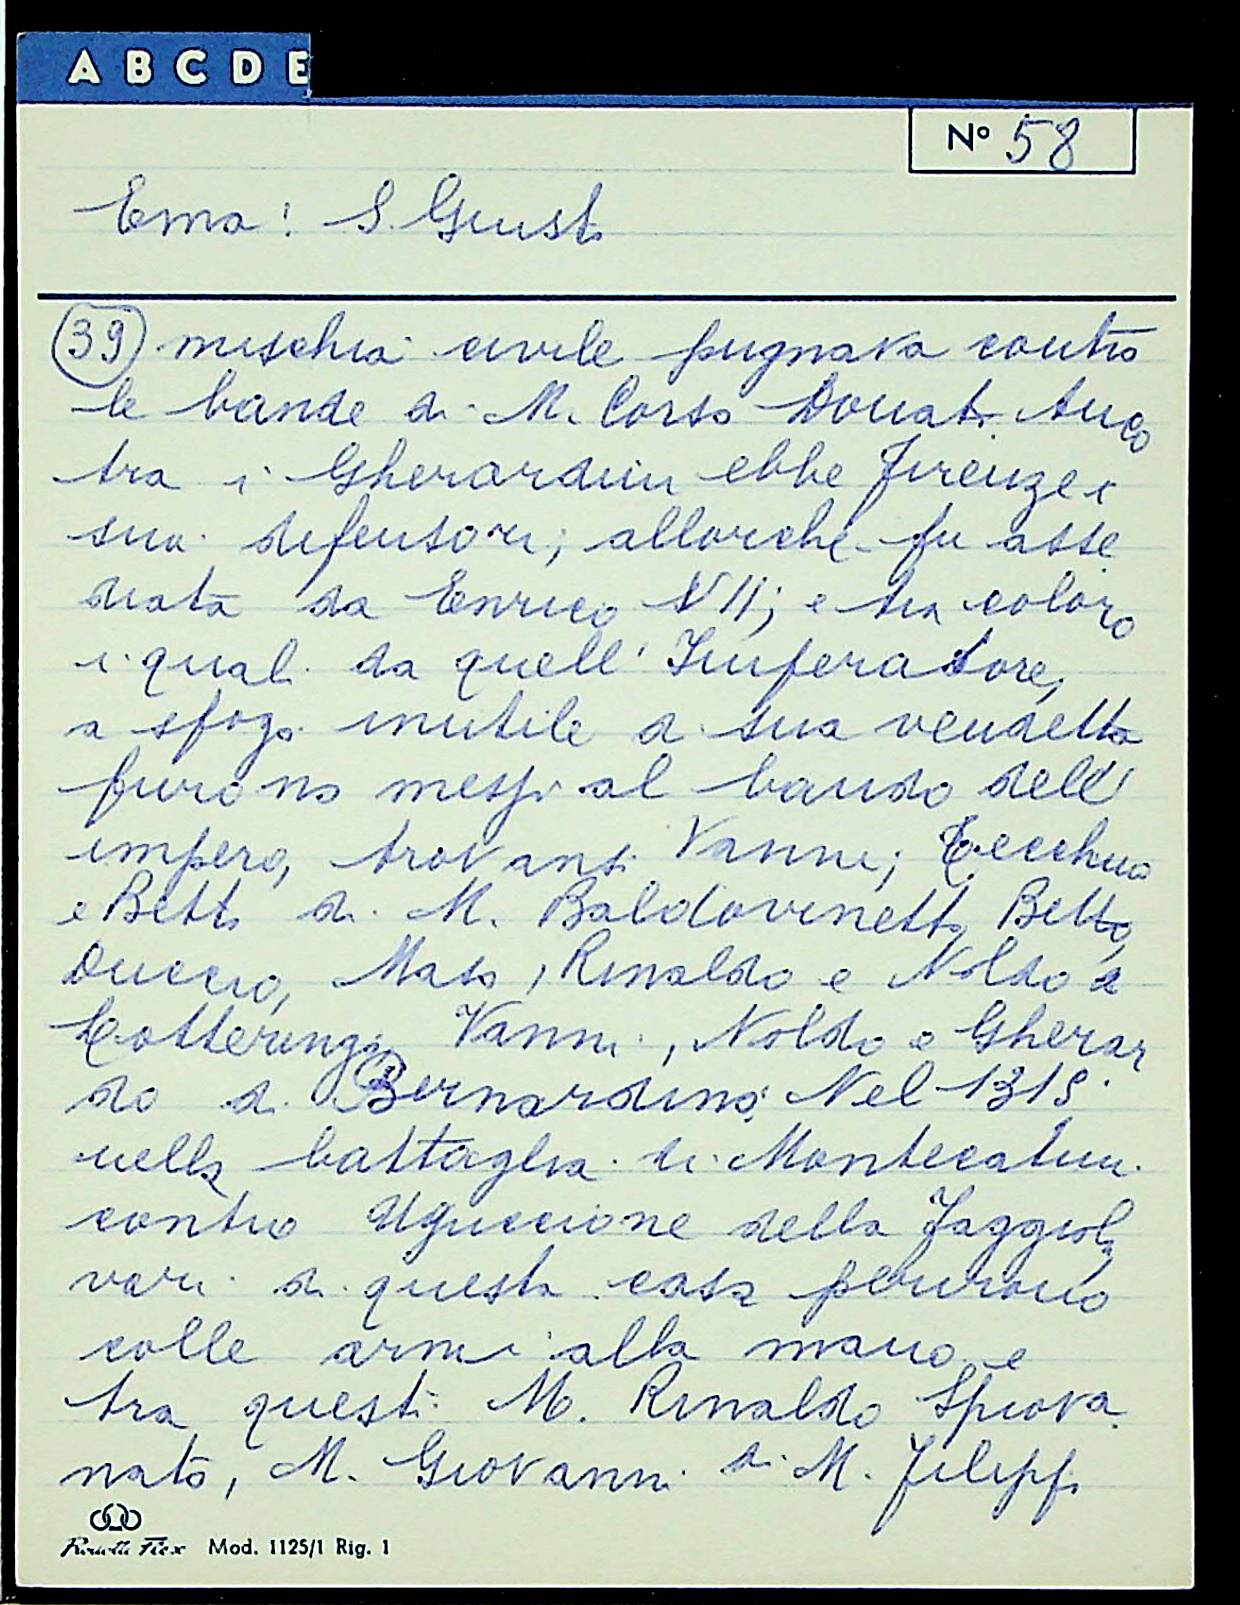 A B C D E
Nº 58
Ema: S. Giusto
39 mischia civile pugnava contro
le bande di M. Corso Donati. Anco
tra i Gherardini ebbe Firenze i
suoi difensori, allorché fu asse
diata da Enrico VII; e tra coloro
i quali da quell' Imperatore,
a sfogo inutile di sua vendetta
furono messi al bando dell'
impero, trovansi Vanni, Cecchino
e Betto di M. Baldovinetto, Betto,
Duccio, Maso, Rinaldo e Noldo di
Lotteringo, Vanni, Noldo e Gherar
do di Bernardino. Nel 1315
nella battaglia di Montecatini
contro Uguccione della Faggiola
vari di questa casa perirono
colle armi alla mano e
tra questi M. Rinaldo Spiova
nato, M. Giovanni di M. Filippo
Mod. 1125/1 Rig. 1